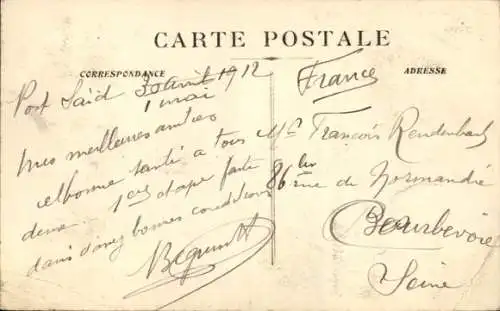 CARTE POSTALE
CORRESPONDANCE
ADRESSE
Port Saïd 30 avril 1912
1 mai
mes meilleures amitiés
et bonne santé a tous
deux. 1ère étape faite
dans d'assez bonnes conditions
France
Mr François
86 bis rue de Normandie
Courbevoie
Seine